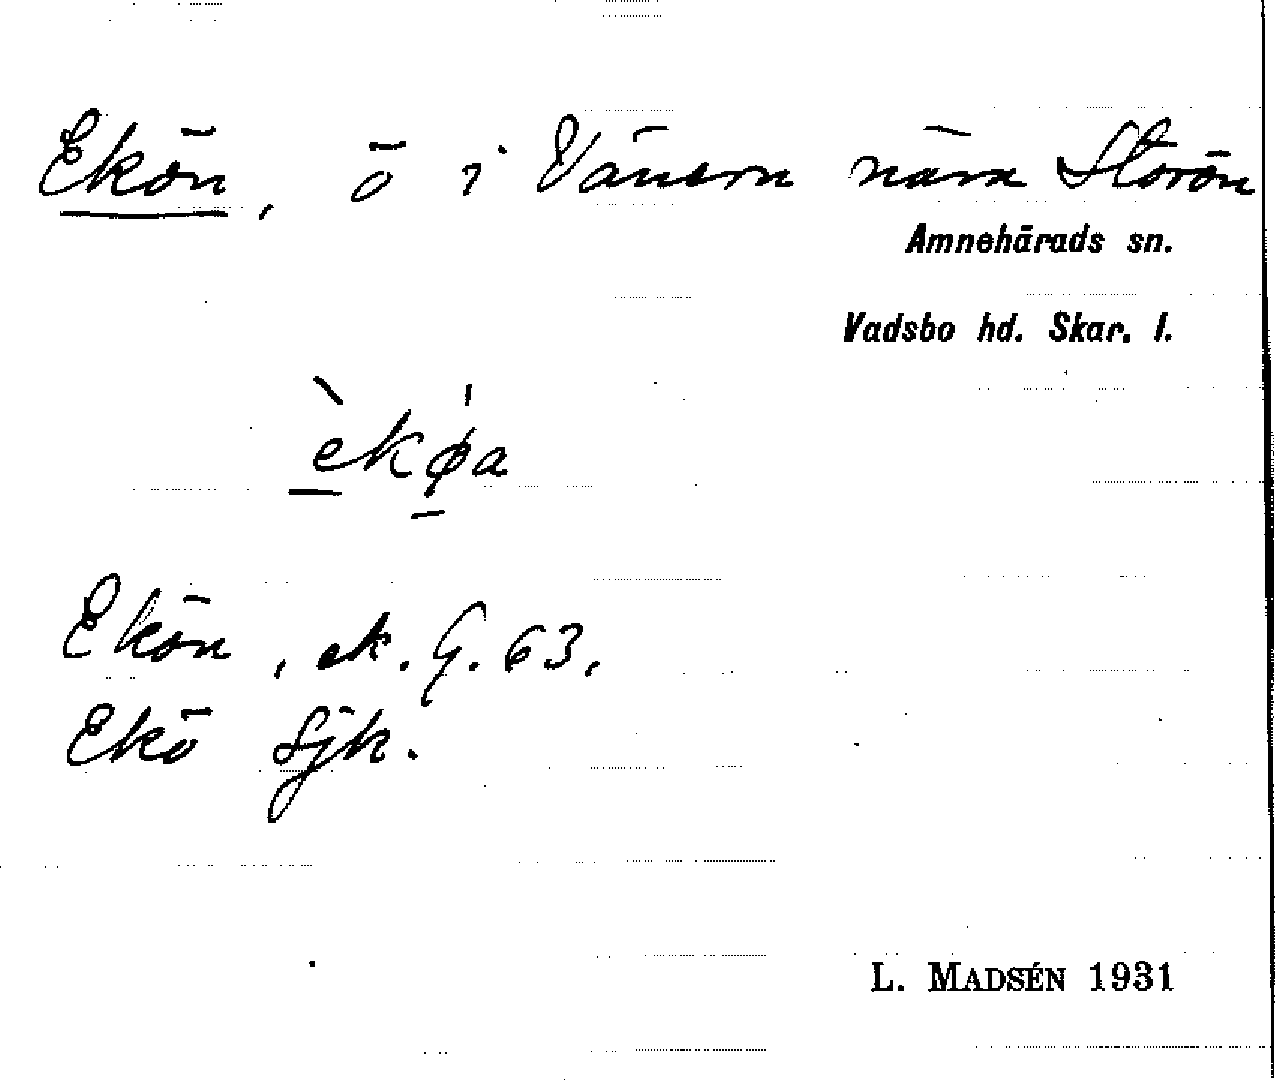 Ekön, ö i Vänern nära Storön
Amnehärads sn.
Vadsbo hd. Skar. l.
èkø̀a
Ekön, ek. G. 63.
Ekö Sjk.
L. MADSÉN 1931